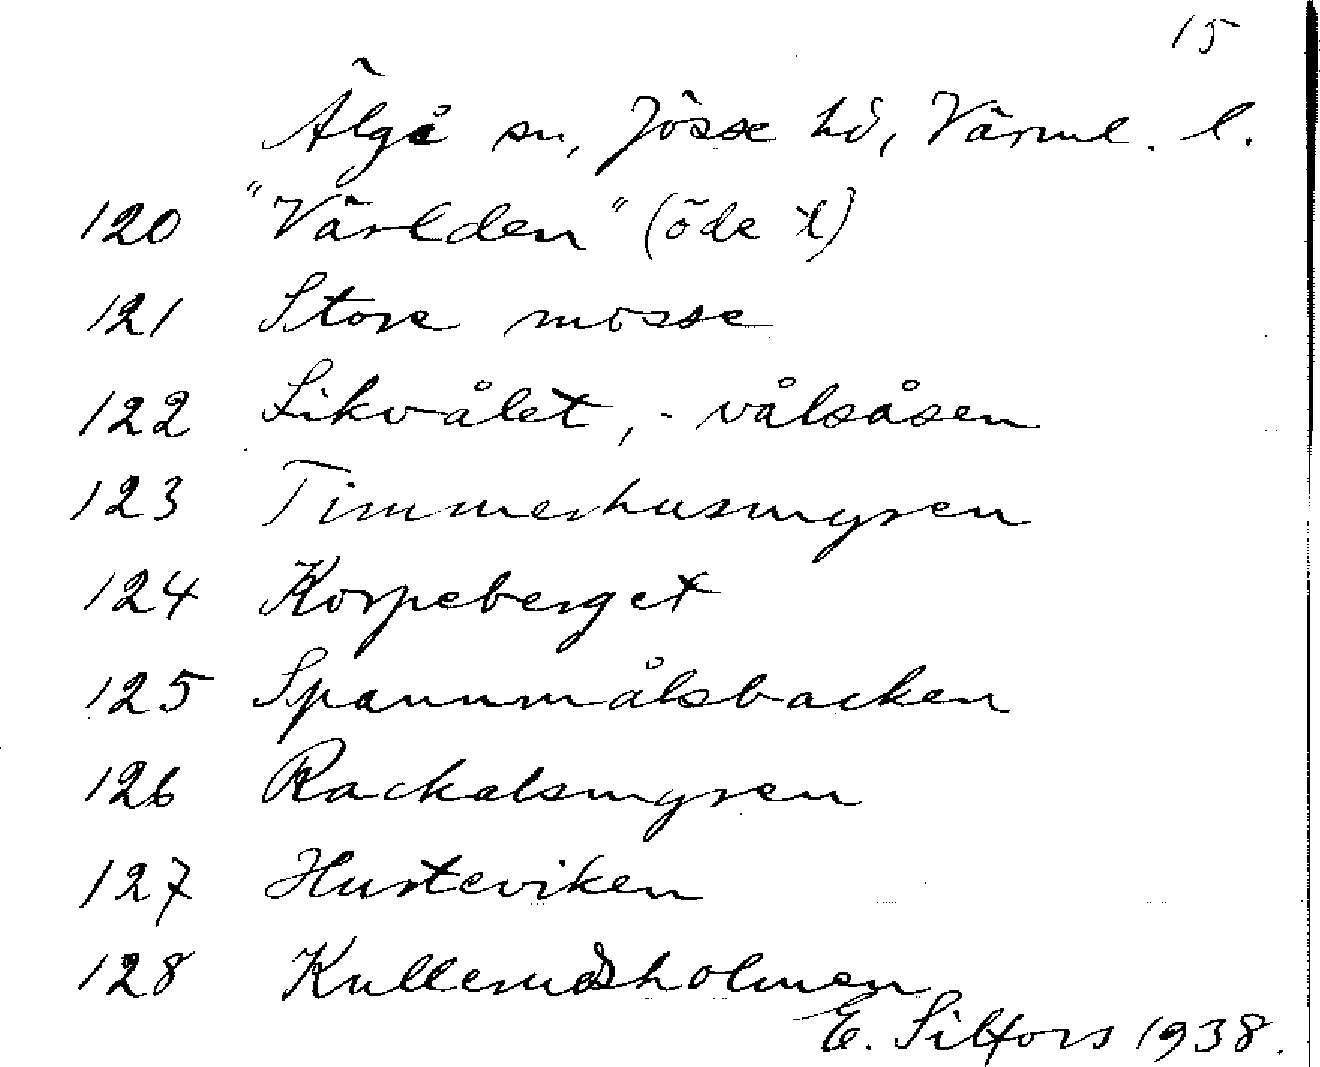 15
Älgå sn, Jösse hd, Värml. l.
120 "Världen" (öde t)
121 Store mosse
122 Sikvålet, - vålsåsen
123 Timmerhusmyren
124 Korpeberget
125 Spannmålsbacken
126 Rackalsmyren
127 Husteviken
128 Kullerudsholmen
E. Silfors 1938.